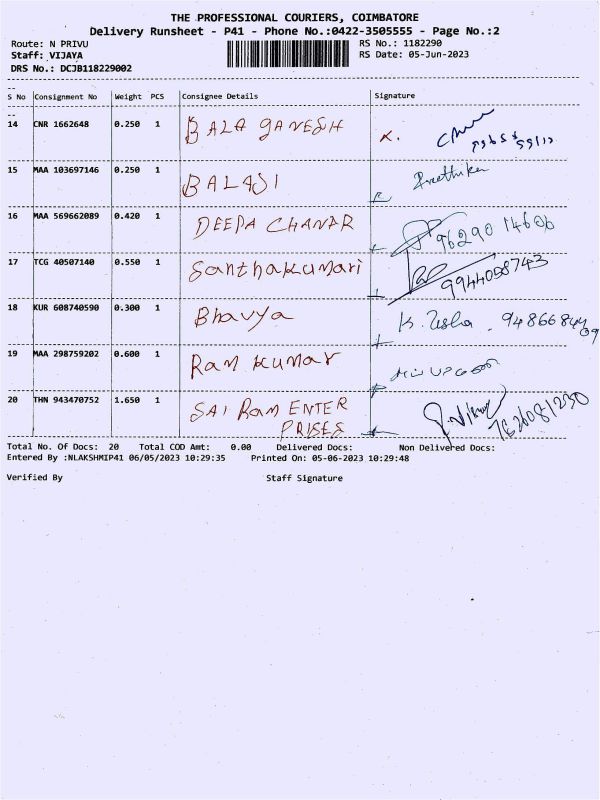 THE PROFESSIONAL COURIERS, COIMBATORE
Delivery Runsheet - P41 - Phone No.:0422-3505555 - Page No.:2
Route: N PRIVU RS No.: 1182290
Staff: VIJAYA RS Date: 05-Jun-2023
DRS No.: DCJB118229002
S No Consignment No Weight PCS Consignee Details Signature
14 CNR 1662648 0.250 1 BALA GANESH
15 MAA 103697146 0.250 1 BALAJI Preethika
16 MAA 569662089 0.420 1 DEEPA CHANAR 96290 14606
17 TCG 40507140 0.550 1 Santhakumari 9944098743
18 KUR 608740590 0.300 1 Bhavya K. Usha
19 MAA 298759202 0.600 1 Ram Kumar
20 THN 943470752 1.650 1 SAI Ram ENTER
PRISES
Total No. Of Docs: 20 Total COD Amt: 0.00 Delivered Docs: Non Delivered Docs:
Entered By :NLAKSHMIP41 06/05/2023 10:29:35 Printed On: 05-06-2023 10:29:48
Verified By Staff Signature